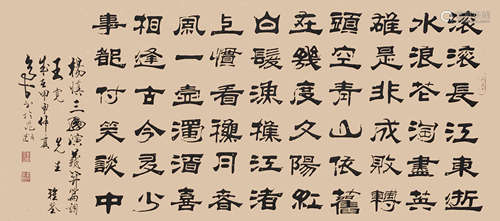 滾滾長江東逝
水浪花淘盡英
雄是非成敗轉
頭空青山依舊
在幾度夕陽紅
白髮漁樵江渚
上慣看秋月春
風一壺濁酒喜
相逢古今多少
事都付笑談中
楊慎三國演義開篇詞
王亮先生
甲申仲夏
書於